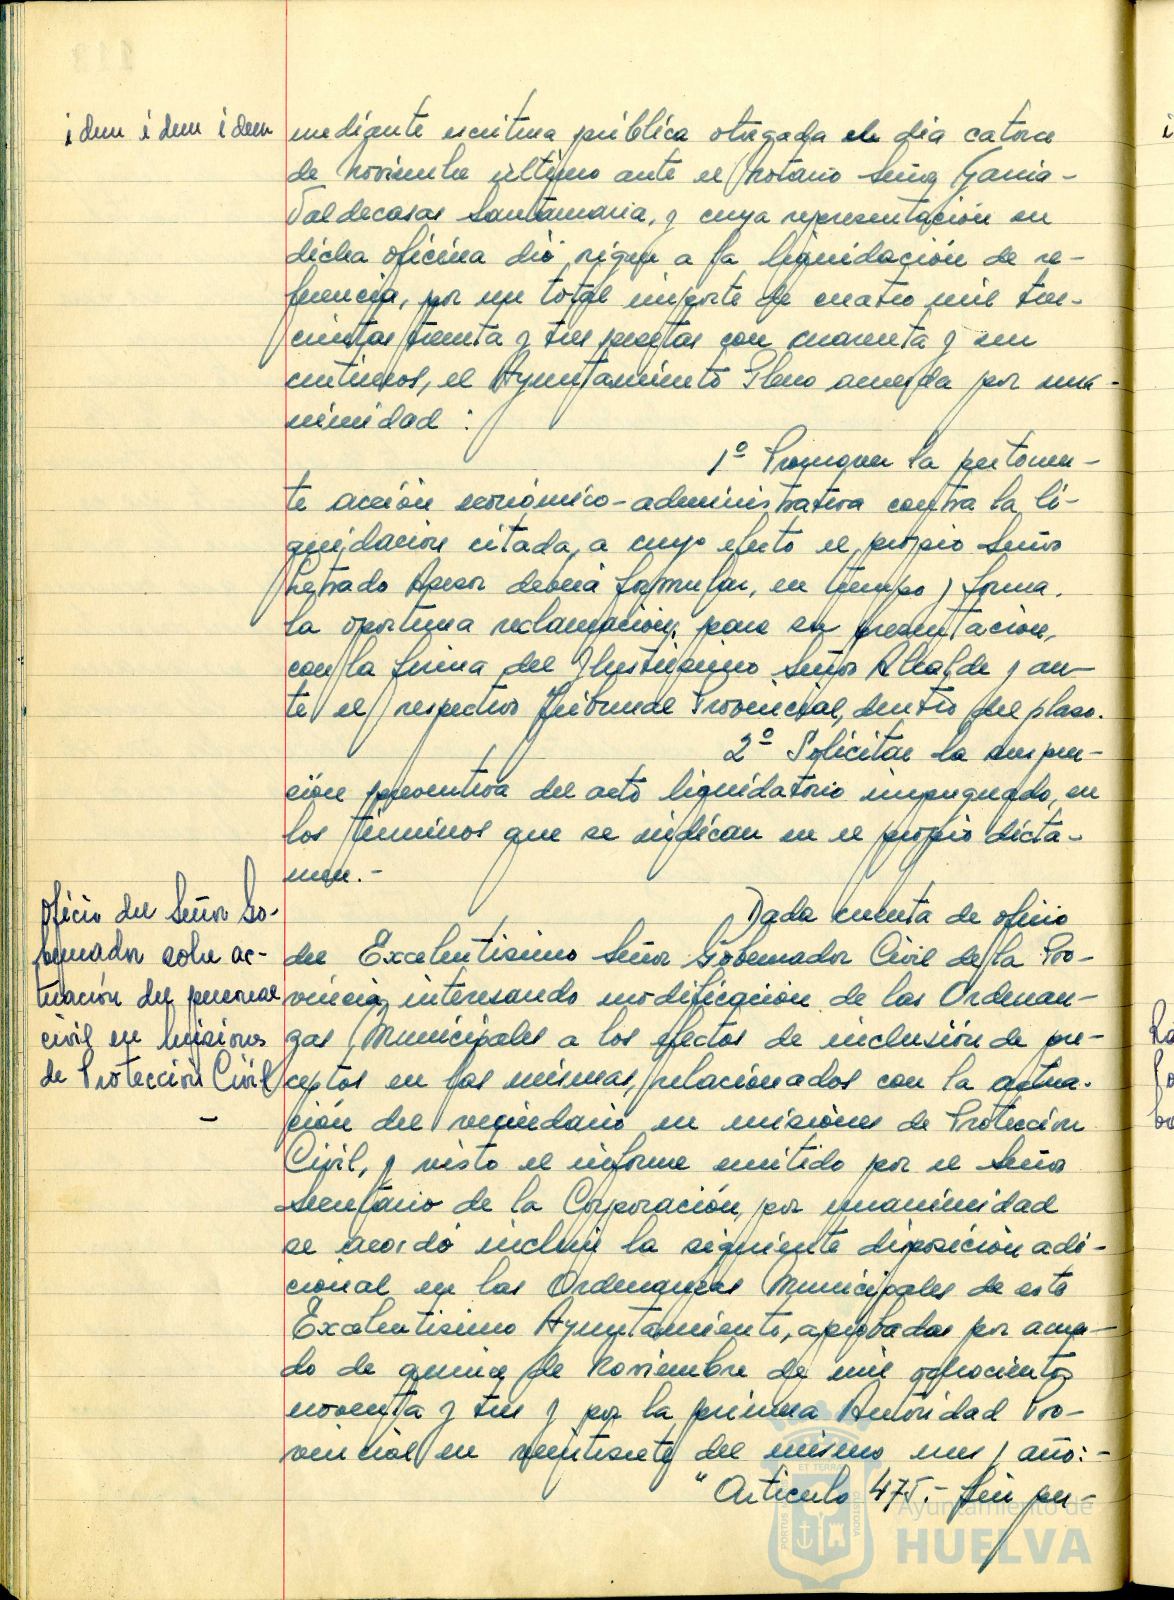 idem idem idem
mediante escritura pública otorgada el dia catorce
de Noviembre último ante el Notario Señor García-
Valdecasas Santamaria, y cuya representación en
dicha oficina dió origen a la liquidación de re-
ferencia, por un total importe de cuatro mil tres-
cientas treinta y tres pesetas con cuarenta y un
centimos, el Ayuntamiento Pleno acuerda por una-
nimidad:
1º Promover la pertinen-
te acción económico-administrativa contra la li-
quidación citada, a cuyo efecto el propio Señor
Letrado Asesor deberá formular, en tiempo y forma,
la oportuna reclamación, para su presentación,
con la firma del Ilustrísimo Señor Alcalde y an-
te el respectivo Tribunal Provincial, dentro del plazo.
2º Solicitar la suspen-
ción preventiva del acto liquidatorio impugnado, en
los términos que se indican en el propio dicta-
men.-
Oficio del Señor Go-
bernador sobre ac-
tuación del personal
civil en misiones
de Protección Civil
-
Dada cuenta de oficio
del Excelentisimo Señor Gobernador Civil de la Pro-
vincia, interesando modificación de las Ordenan-
zas Municipales a los efectos de inclusión de pre-
ceptos en las mismas, relacionados con la actua-
ción del vecindario en misiones de Protección
Civil, y visto el informe emitido por el Señor
Secretario de la Corporación, por unanimidad
se acordó incluir la siguiente disposición adi-
cional en las Ordenanzas Municipales de este
Excelentisimo Ayuntamiento, aprobadas por acuer-
do de quince de Noviembre de mil ochocientos
noventa y tres y por la primera Autoridad Pro-
vincial en veintisiete del mismo mes y año:-
"Articulo 475.- Sin per-
Ayuntamiento de
HUELVA